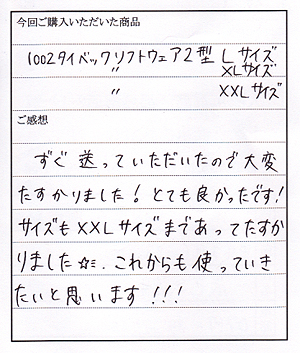 今回ご購入いただいた商品
1002タイベックソフトウェア2型 Lサイズ
〃 XLサイズ
〃 XXLサイズ
ご感想
すぐ送っていただいたので大変
たすかりました！とても良かったです！
サイズもXXLサイズまであってたすか
りました☆ミ. これからも使っていき
たいと思います！！！